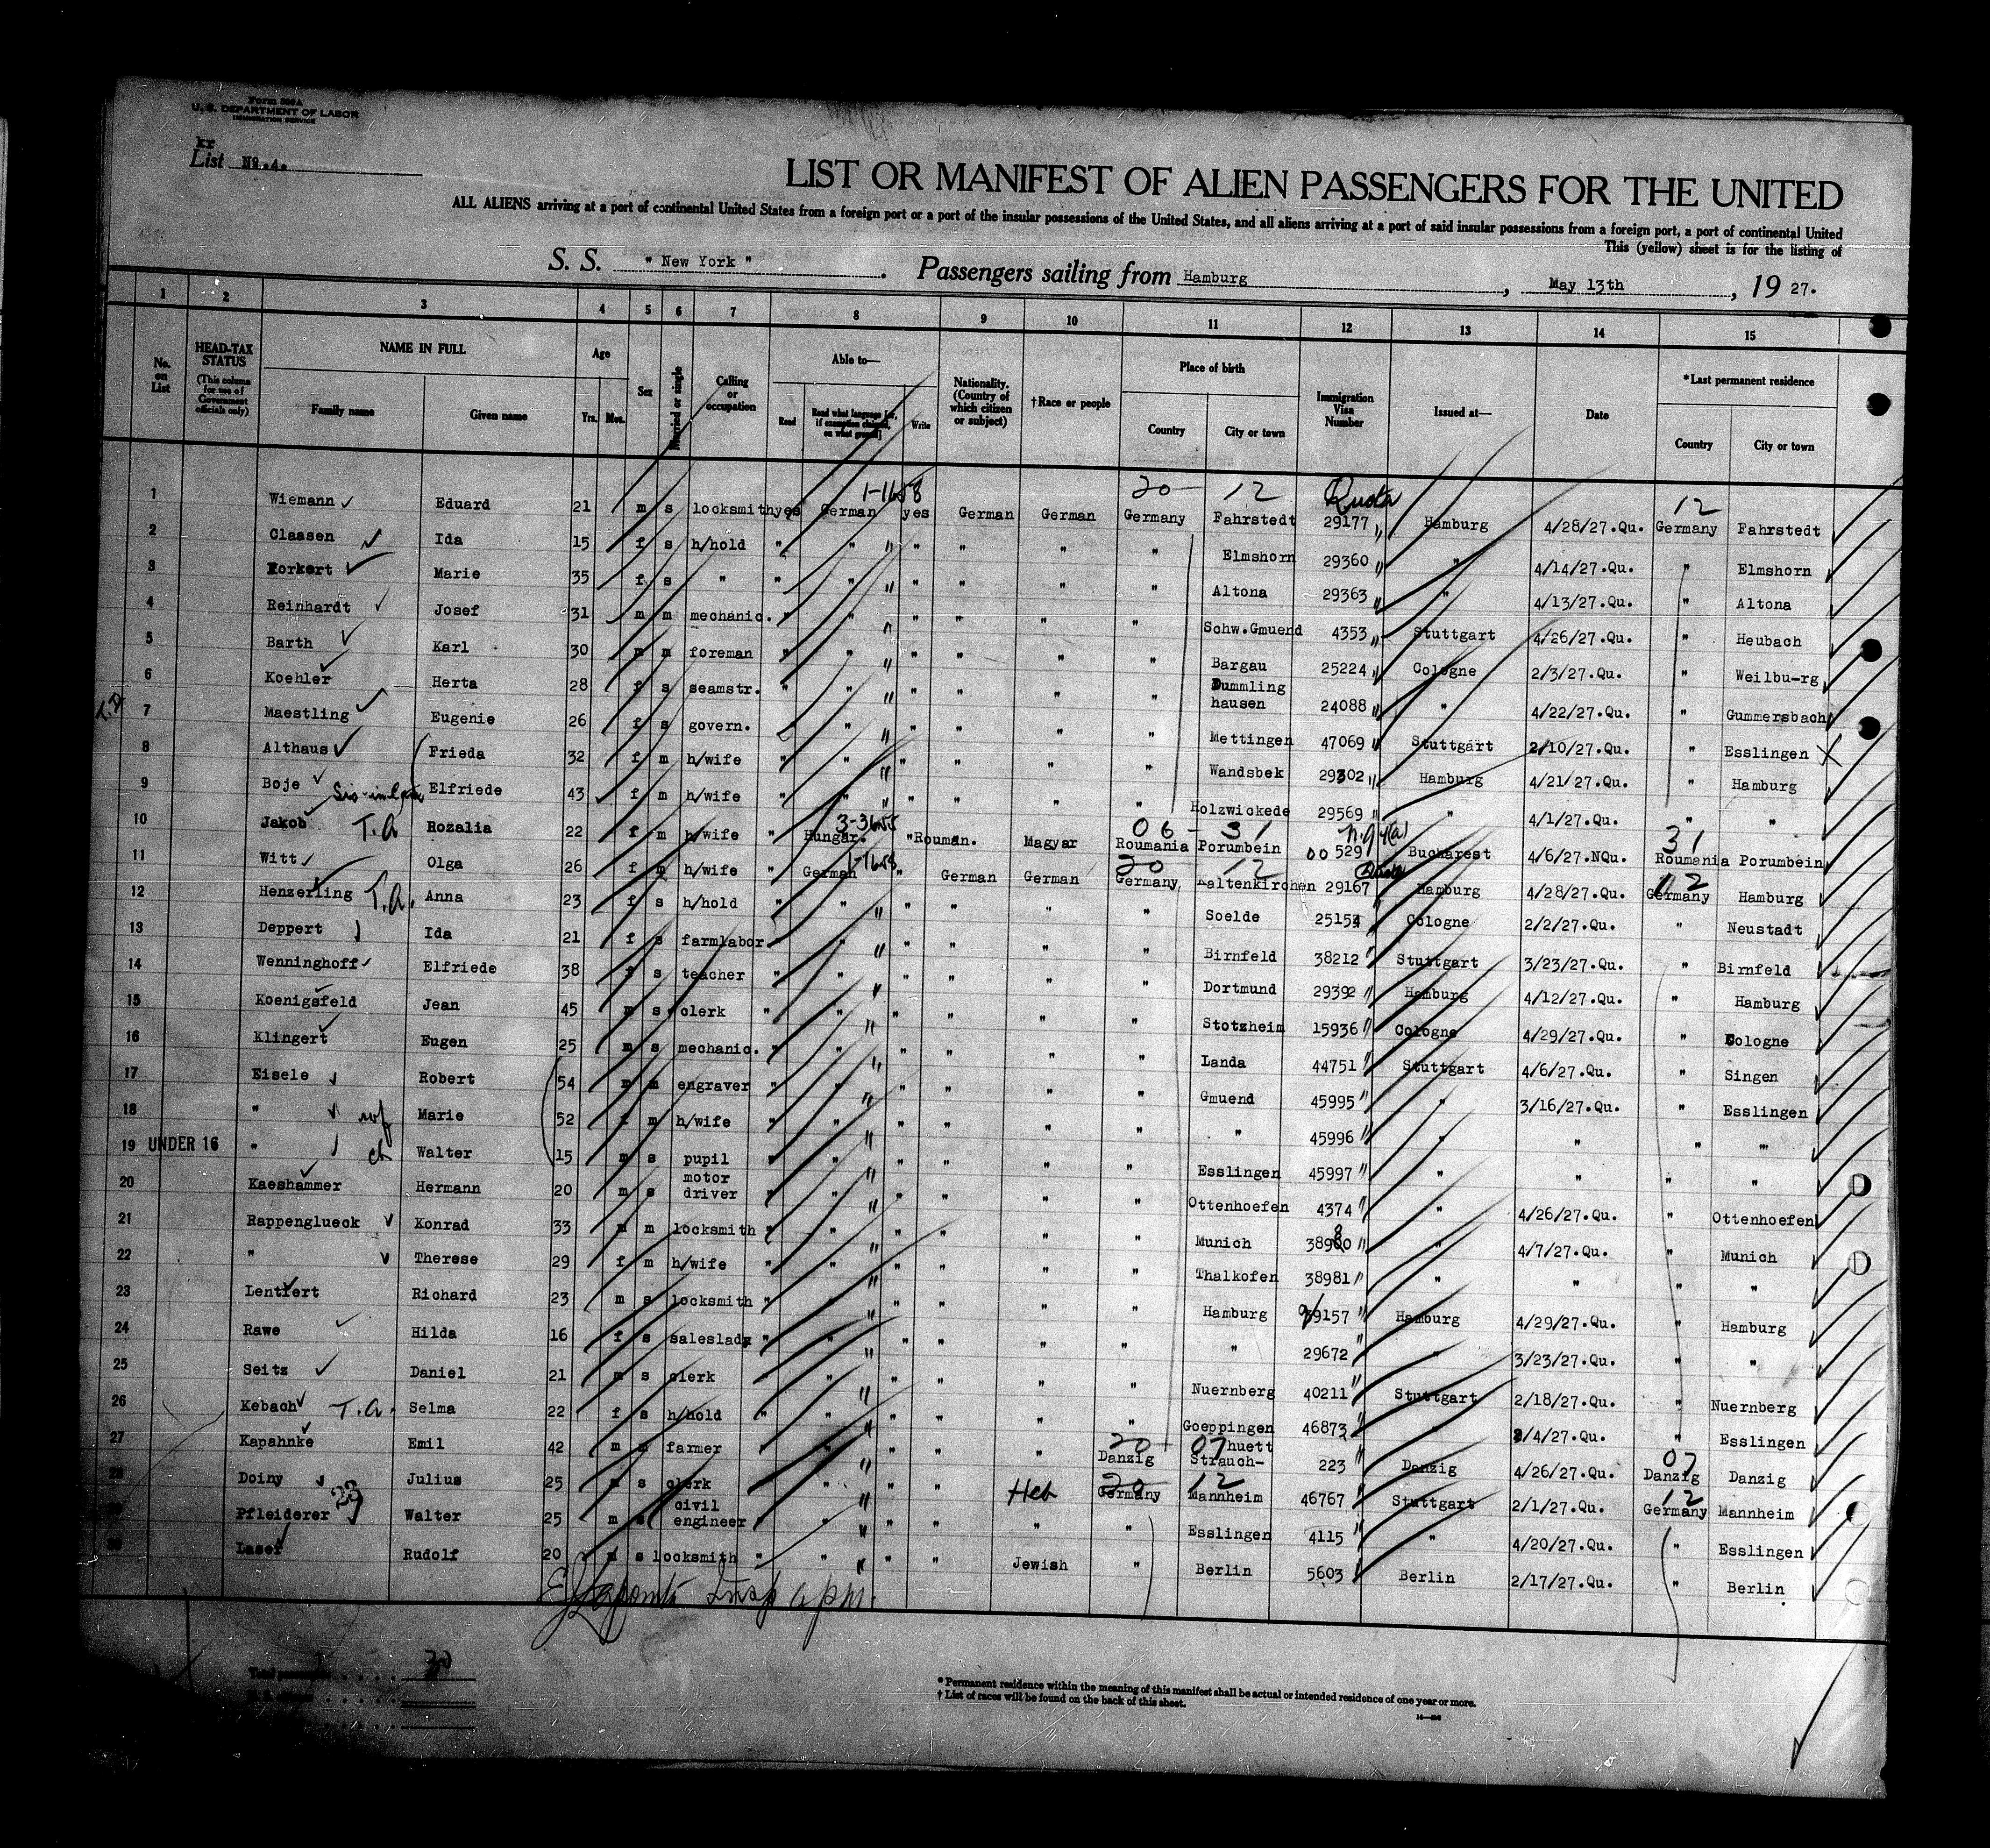 Form 500A
U. S. DEPARTMENT OF LABOR
IMMIGRATION SERVICE
kr
List No. 4.
LIST OR MANIFEST OF ALIEN PASSENGERS FOR THE UNITED
ALL ALIENS arriving at a port of continental United States from a foreign port or a port of the insular possessions of the United States, and all aliens arriving at a port of said insular possessions from a foreign port, a port of continental United
This (yellow) sheet is for the listing of
S. S. " New York " . Passengers sailing from Hamburg , May 13th , 19 27.
1 2 3 4 5 6 7 8 9 10 11 12 13 14 15
No. on List HEAD-TAX STATUS (This column for use of Government officials only) NAME IN FULL Family name Given name Age Yrs. Mos. Sex Married or single Calling or occupation Able to— Read Read what language [or, if exemption claimed, on what ground] Write Nationality. (Country of which citizen or subject) †Race or people Place of birth Country City or town Immigration Visa Number Issued at— Date *Last permanent residence Country City or town
1-1658 20 12 Quota 12
1 Wiemann Eduard 21 m s locksmith yes German yes German German Germany Fahrstedt 29177 Hamburg 4/28/27.Qu. Germany Fahrstedt
2 Claasen Ida 15 f s h/hold " " " " " " Elmshorn 29360 " 4/14/27.Qu. " Elmshorn
3 Korkert Marie 35 f s " " " " " " " Altona 29363 " 4/13/27.Qu. " Altona
4 Reinhardt Josef 31 m m mechanic. " " " " " " Schw.Gmuend 4353 Stuttgart 4/26/27.Qu. " Heubach
5 Barth Karl 30 m m foreman " " " " " " Bargau 25224 Cologne 2/3/27.Qu. " Weilbu-rg
6 Koehler Herta 28 f s seamstr. " " " " " " Dummling hausen 24088 " 4/22/27.Qu. " Gummersbach
7 Maestling Eugenie 26 f s govern. " " " " " " Mettingen 47069 Stuttgart 2/10/27.Qu. " Esslingen X
8 Althaus Frieda 32 f m h/wife " " " " " " Wandsbek 29302 Hamburg 4/21/27.Qu. " Hamburg
9 Boje Sis-in-law Elfriede 43 f m h/wife " " " " " " Holzwickede 29569 " 4/1/27.Qu. " "
3-3655 06 - 31 31
10 Jakob T.A Rozalia 22 f m h/wife " Hungar. " Rouman. Magyar Roumania Porumbein 00529 Bucharest 4/6/27.NQu. Roumania Porumbein
1-1658 20 12 Quota 12
11 Witt Olga 26 f m h/wife " German " German German Germany Kaltenkirchen 29167 Hamburg 4/28/27.Qu. Germany Hamburg
12 Henzerling T.A. Anna 23 f s h/hold " " " " " " Soelde 25154 Cologne 2/2/27.Qu. " Neustadt
13 Deppert Ida 21 f s farmlabor " " " " " " Birnfeld 38212 Stuttgart 3/23/27.Qu. " Birnfeld
14 Wenninghoff Elfriede 38 f s teacher " " " " " " Dortmund 29392 Hamburg 4/12/27.Qu. " Hamburg
15 Koenigsfeld Jean 45 m s clerk " " " " " " Stotzheim 15936 Cologne 4/29/27.Qu. " Cologne
16 Klingert Eugen 25 m s mechanic. " " " " " " Landa 44751 Stuttgart 4/6/27.Qu. " Singen
17 Eisele Robert 54 m m engraver " " " " " " Gmuend 45995 " 3/16/27.Qu. " Esslingen
18 " wf Marie 52 f m h/wife " " " " " " " 45996 " " " "
19 UNDER 16 " ch Walter 15 m s pupil " " " " " " Esslingen 45997 " " " "
20 Kaeshammer Hermann 20 m s motor driver " " " " " " Ottenhoefen 4374 " 4/26/27.Qu. " Ottenhoefen
21 Rappenglueck Konrad 33 m m locksmith " " " " " " Munich 38980 " 4/7/27.Qu. " Munich
22 " Therese 29 f m h/wife " " " " " " Thalkofen 38981 " " " "
23 Lentfert Richard 23 m s locksmith " " " " " " Hamburg 39157 Hamburg 4/29/27.Qu. " Hamburg
24 Rawe Hilda 16 f s saleslady " " " " " " " 29672 " 3/23/27.Qu. " "
25 Seitz Daniel 21 m s clerk " " " " " " Nuernberg 40211 Stuttgart 2/18/27.Qu. " Nuernberg
26 Kebach T.A. Selma 22 f s h/hold " " " " " " Goeppingen 46873 " 2/4/27.Qu. " Esslingen
20 07 07
27 Kapahnke Emil 42 m m farmer " " " " " Danzig Strauch- huett 223 Danzig 4/26/27.Qu. Danzig Danzig
20 12 12
28 Doiny Julius 25 m s clerk " " " " Heb Germany Mannheim 46767 Stuttgart 2/1/27.Qu. Germany Mannheim
29 Pfleiderer Walter 25 m s civil engineer " " " " " " Esslingen 4115 " 4/20/27.Qu. " Esslingen
30 Laser Rudolf 20 m s locksmith " " " " Jewish " Berlin 5603 Berlin 2/17/27.Qu. " Berlin
Total passengers 30
* Permanent residence within the meaning of this manifest shall be actual or intended residence of one year or more.
† List of races will be found on the back of this sheet.